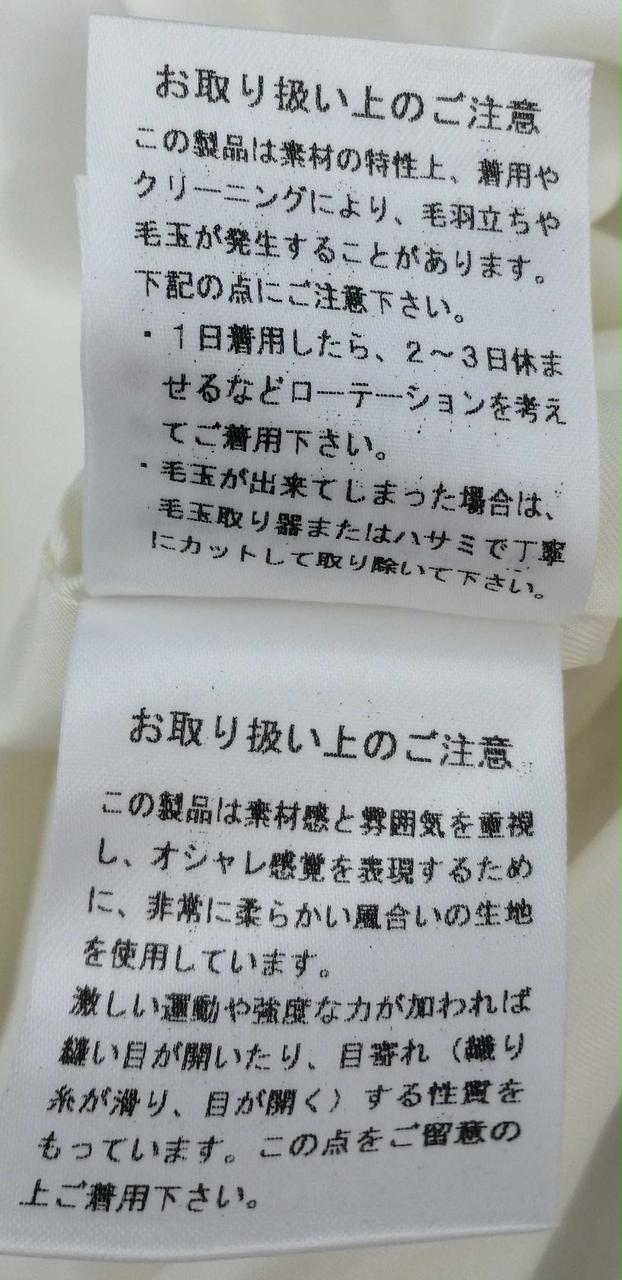 お取り扱い上のご注意
この製品は素材の特性上、着用や
クリーニングにより、毛羽立ちや
毛玉が発生することがあります。
下記の点にご注意下さい。
・１日着用したら、２～３日休ま
せるなどローテーションを考え
てご着用下さい。
・毛玉が出来てしまった場合は、
毛玉取り器またはハサミで丁寧
にカットして取り除いて下さい。
お取り扱い上のご注意
この製品は素材感と雰囲気を重視
し、オシャレ感覚を表現するため
に、非常に柔らかい風合いの生地
を使用しています。
激しい運動や強度な力が加われば
縫い目が開いたり、目寄れ（織り
糸が滑り、目が開く）する性質を
もっています。この点をご留意の
上ご着用下さい。